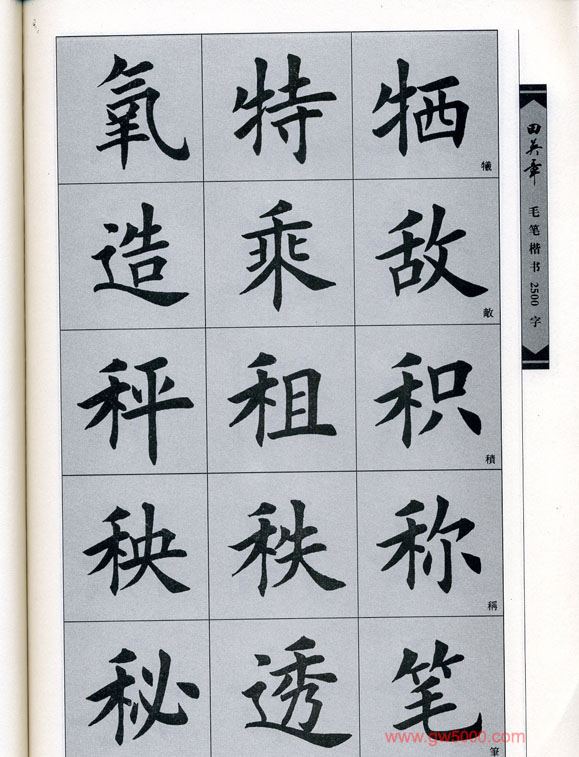 氧 特 牺 犧
造 乘 敌 敵
秤 租 积 積
秧 秩 称 稱
秘 透 笔 筆
田英章 毛笔楷书2500字
www.gw5000.com